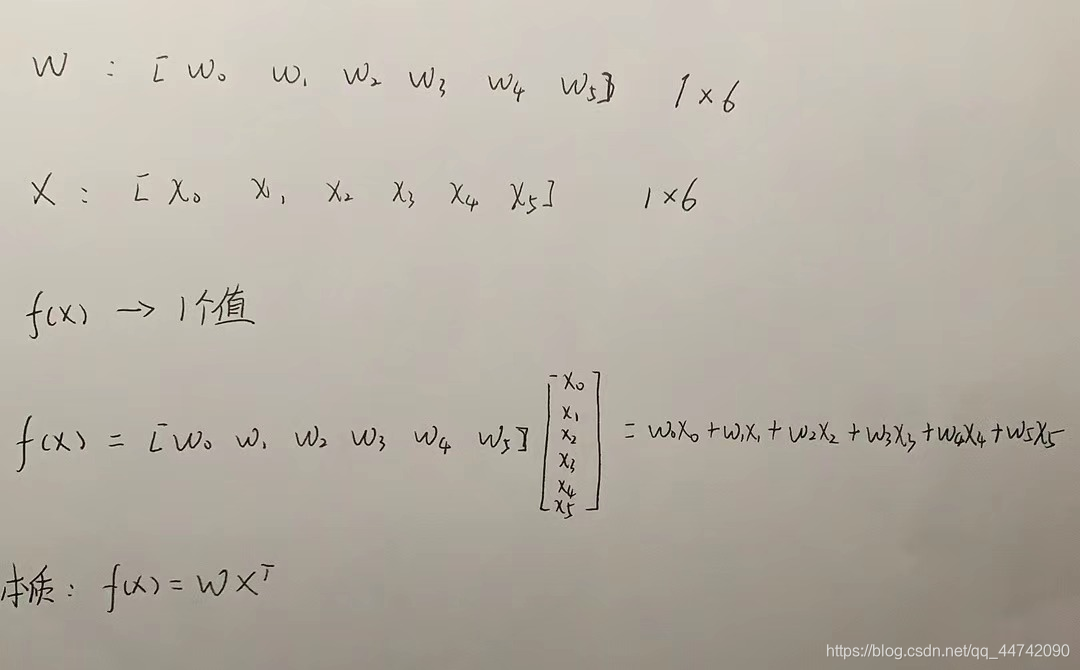 W : [ w₀ w₁ w₂ w₃ w₄ w₅] 1×6
X : [ x₀ x₁ x₂ x₃ x₄ x₅] 1×6
f(x) → 1个值
f(x) = [w₀ w₁ w₂ w₃ w₄ w₅] [x₀ x₁ x₂ x₃ x₄ x₅] = w₀x₀+w₁x₁+w₂x₂+w₃x₃+w₄x₄+w₅x₅
本质: f(x) = WXᵀ
https://blog.csdn.net/qq_44742090